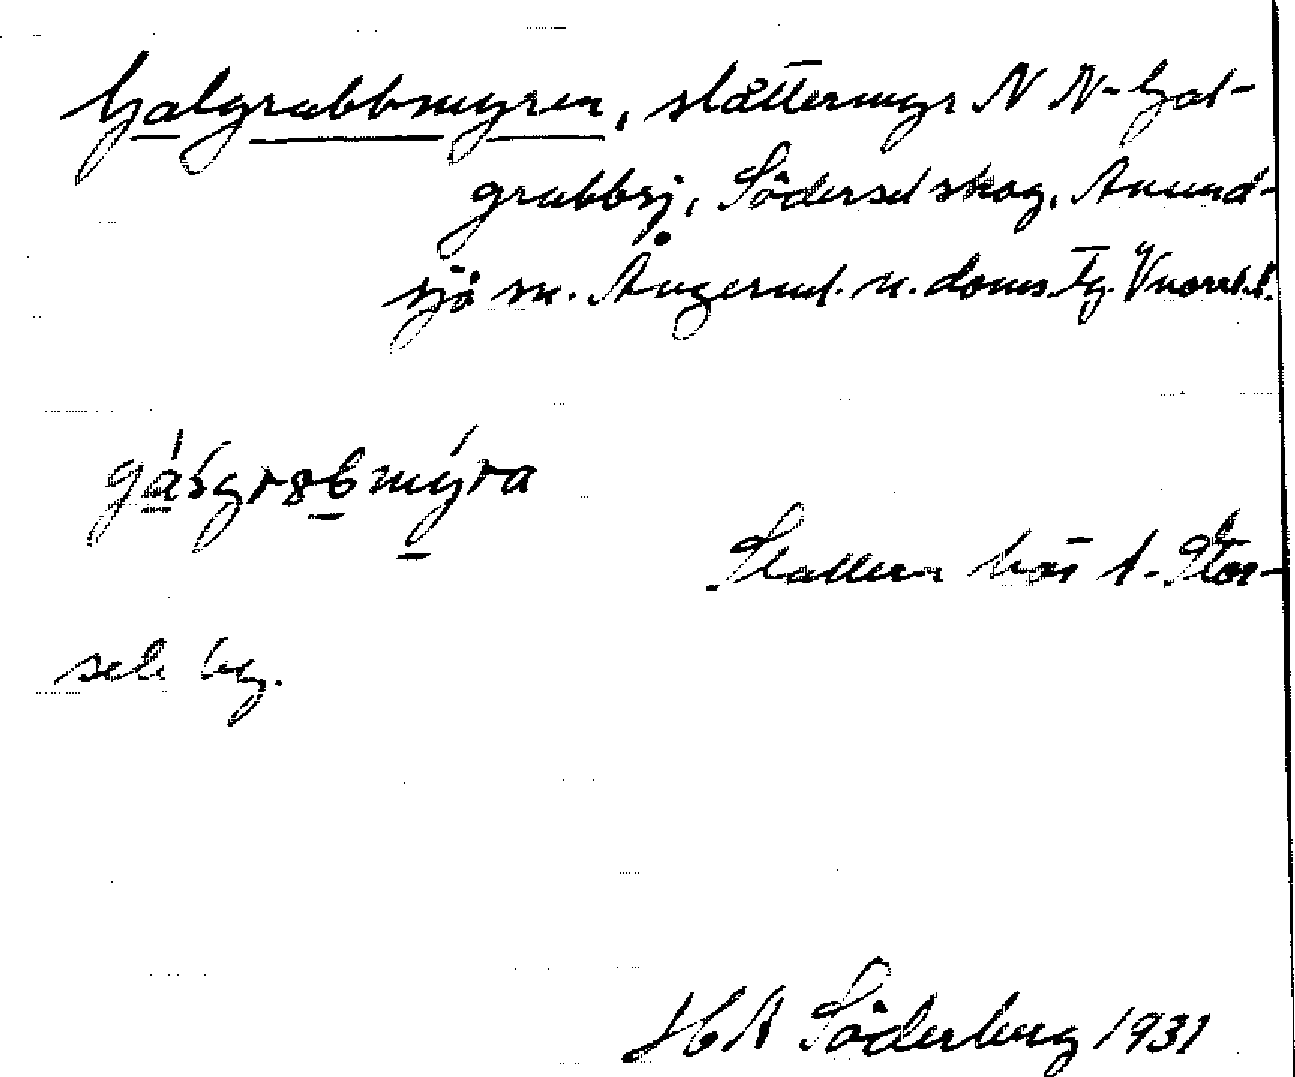 Galgrubbmyren, slåttermyr N N-Gal-
grubbsj, Södersel skog, Anund-
sjö sn. Ångerml. n. doms. Tg. Vnorrl. l.
gásgrsbmýra
hör t. Stor-
sele by.
HA Söderberg 1931